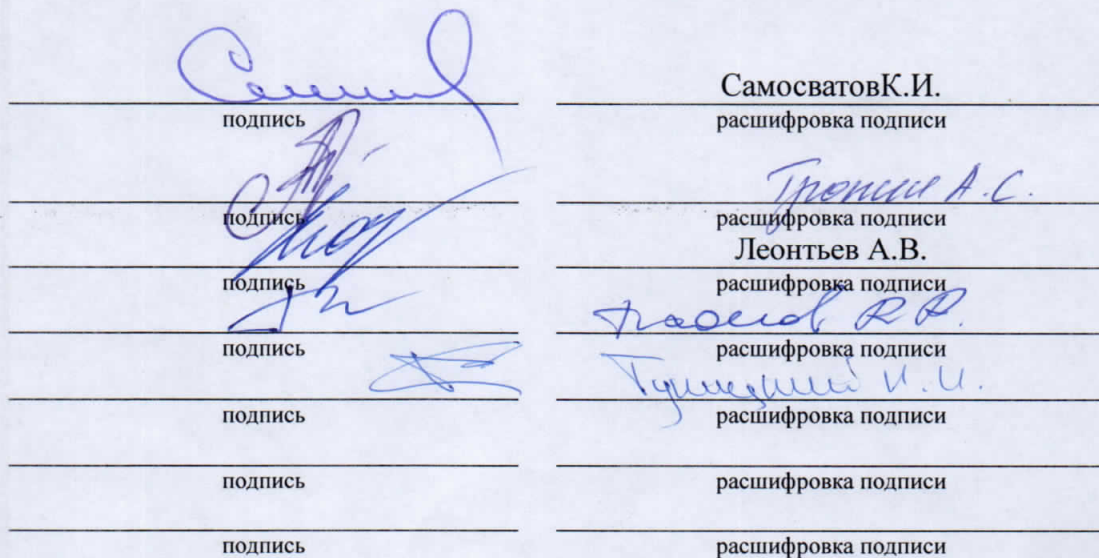 СамосватовК.И.
подпись расшифровка подписи
Тронин А.С.
подпись расшифровка подписи
Леонтьев А.В.
подпись расшифровка подписи
Р.Р.
подпись расшифровка подписи
И.И.
подпись расшифровка подписи
подпись расшифровка подписи
подпись расшифровка подписи